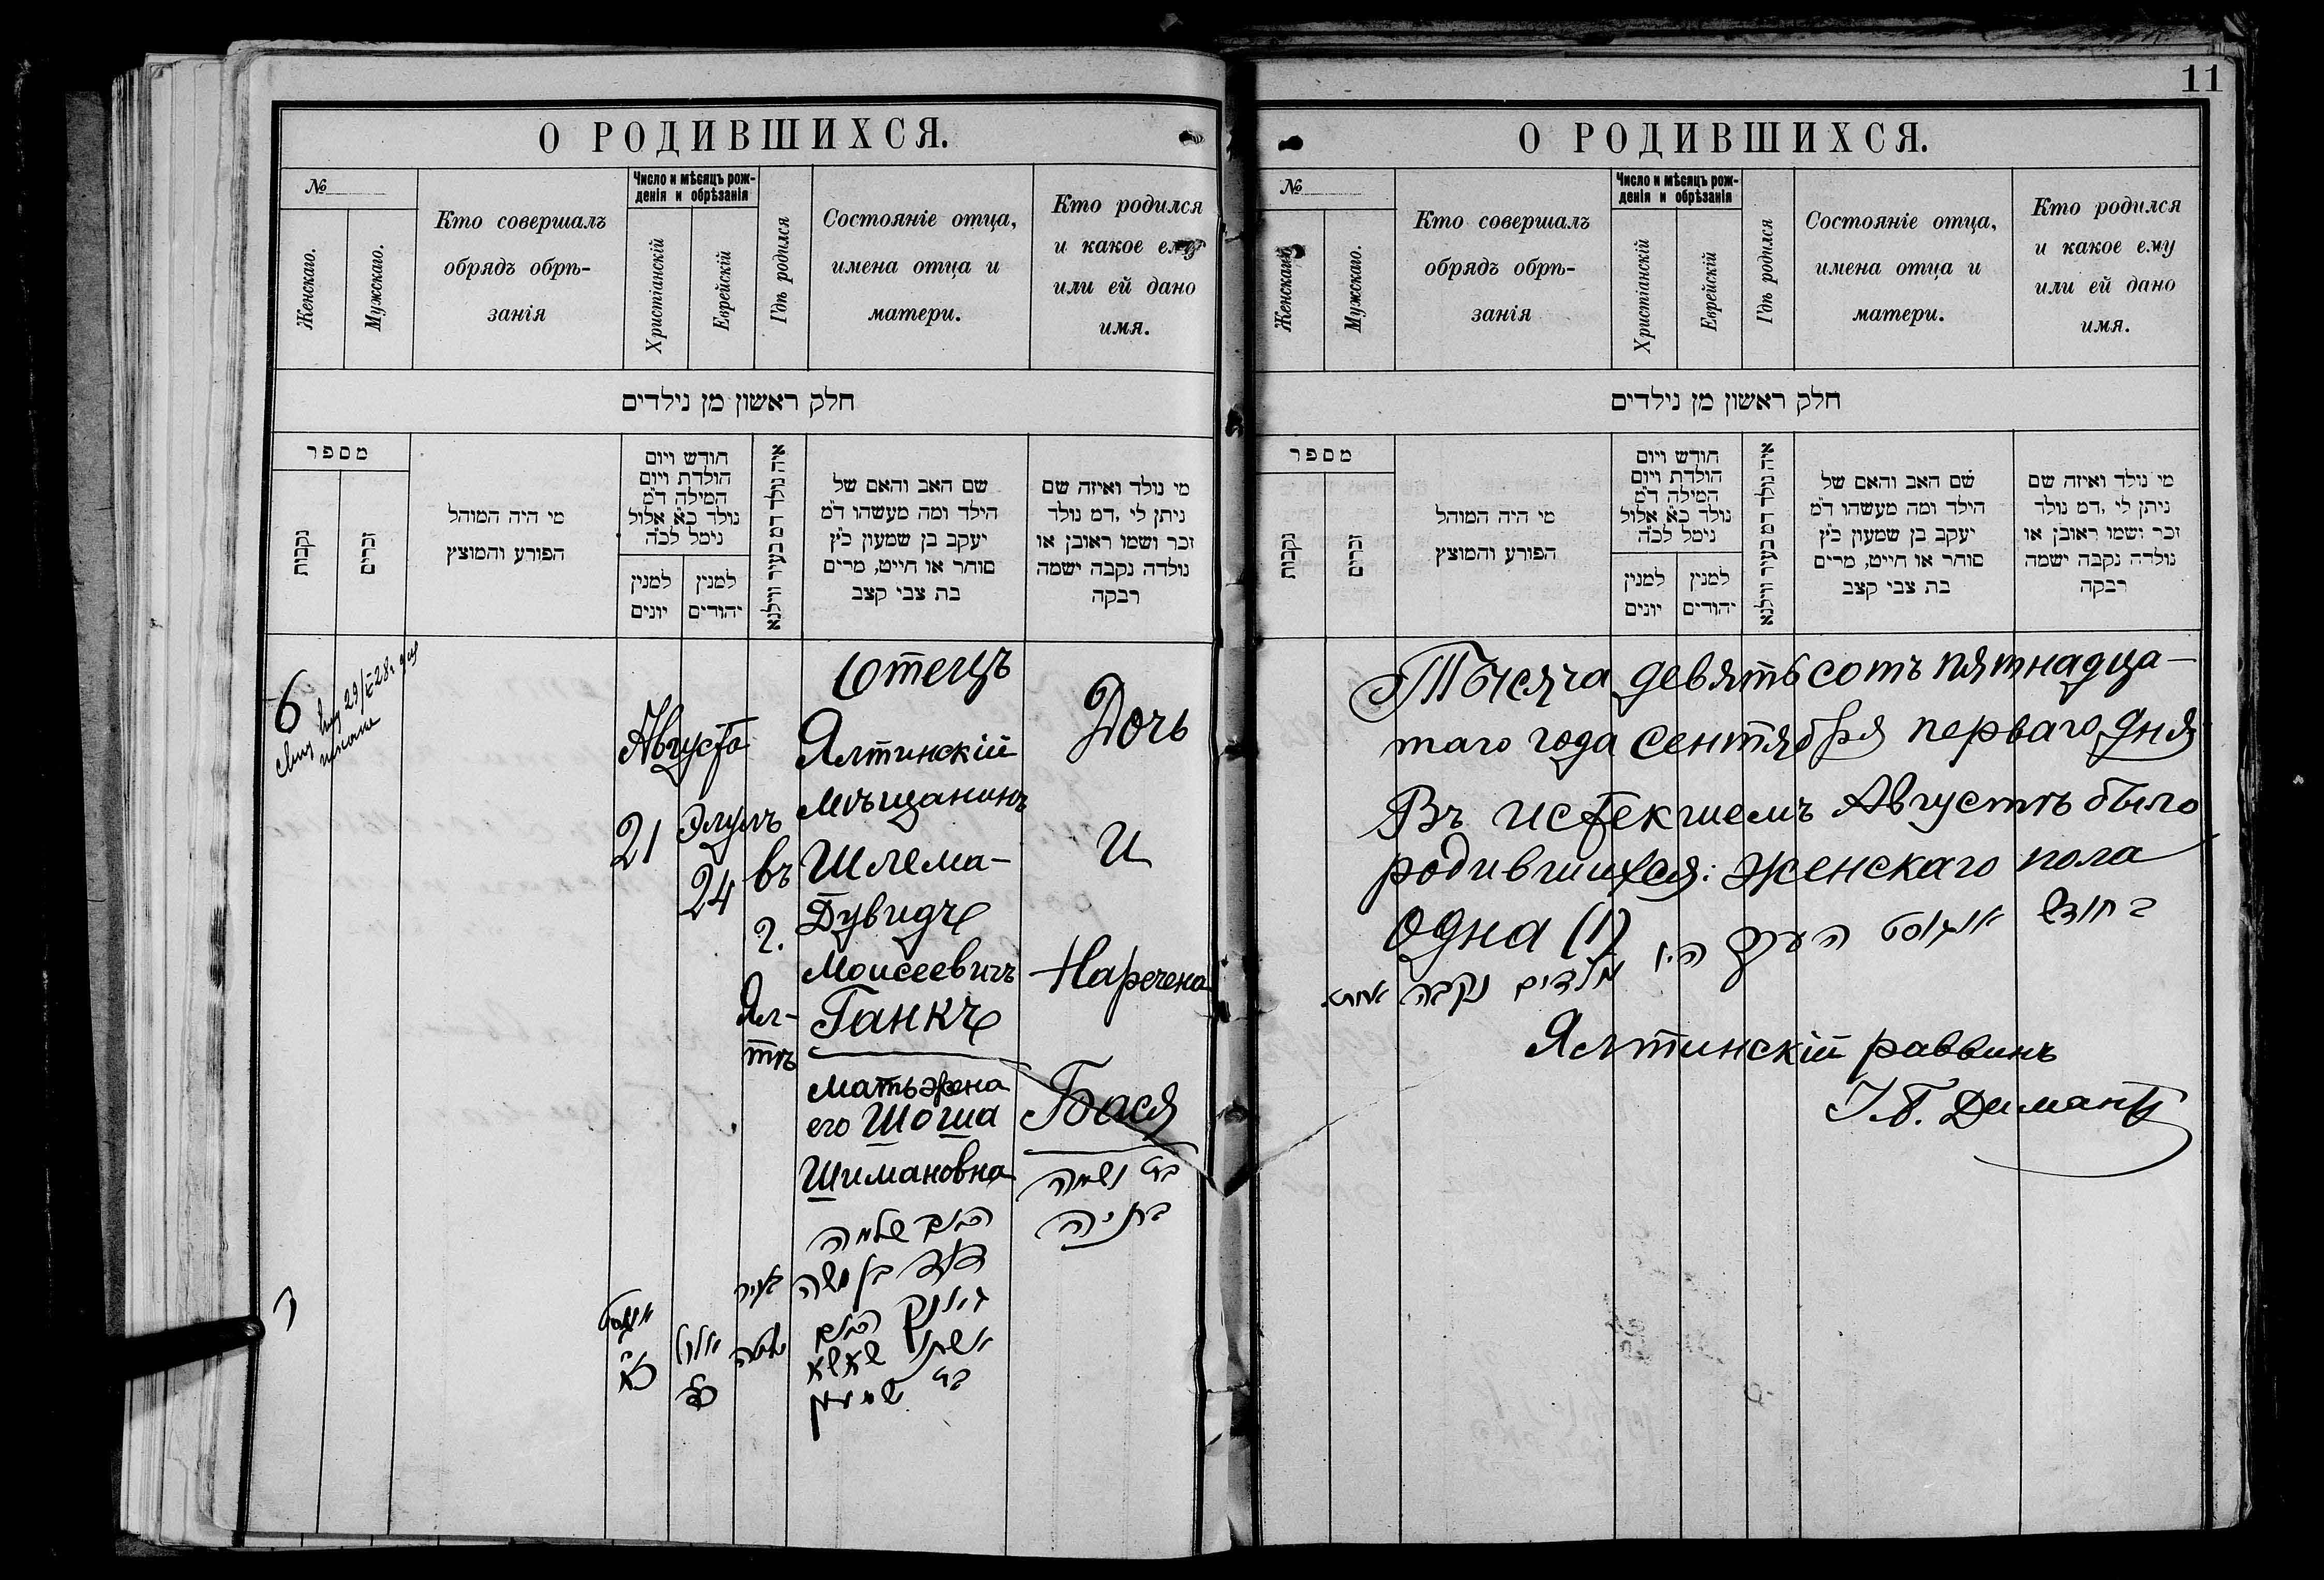 О РОДИВШИХСЯ.
№
Женскаго.
Мужскаго.
Кто совершалъ
обрядъ обрѣ-
занія
Число и мѣсяцъ рож-
денія и обрѣзанія
Христіанскій
Еврейскій
Гдѣ родился
Состояніе отца,
имена отца и
матери.
Кто родился
и какое ему
или ей дано
имя.
חלק ראשון מן נילדים
מספר
נקבות
זכרים
מי היה המוהל
הפורע והמוצץ
חודש ויום
הולדת ויום
המילה ד״מ
נולד כ״א אלול
נימל לכ״ה
למנין
יונים
למנין
יהודים
איה נולד דמ בעיר ווילנא
שם האב והאם של
הילד ומה מעשהו ד״מ
יעקב בן שמעון כ״ץ
סוחר או חייט, מרים
בת צבי קצב
מי נולד ואיזה שם
ניתן לי ,דמ נולד
זכר ושמו ראובן או
נולדה נקבה ישמה
רבקה
6
Августа
21
Элулъ
24
въ
г.
Ял-
тѣ
Отецъ
Ялтинскій
мѣщанинъ
Шлема-
Дувидъ
Моисеевичъ
Ганкъ
мать жена
его Шоша
Шимановна
Дочь
и
Наречена
Бася
בת ושמה
בתיה
האב שלמה
דוד בן משה
גאנק האם
אשתו שאשא
בת שמעון
בעיר
יאלטה
אויגוסט
כ״א
אלול
כ״ד
ו
11
О РОДИВШИХСЯ.
№
Женскаго
Мужскаго.
Кто совершалъ
обрядъ обрѣ-
занія
Число и мѣсяцъ рож-
денія и обрѣзанія
Христіанскій
Еврейскій
Гдѣ родился
Состояніе отца,
имена отца и
матери.
Кто родился
и какое ему
или ей дано
имя.
חלק ראשון מן נילדים
מספר
נקבות
זכרים
מי היה המוהל
הפורע והמוצץ
חודש ויום
הולדת ויום
המילה ד״מ
נולד כ״א אלול
נימל לכ״ה
למנין
יונים
למנין
יהודים
איה נולד דמ בעיר ווילנא
שם האב והאם של
הילד ומה מעשהו ד״מ
יעקב בן שמעון כ״ץ
סוחר או חייט, מרים
בת צבי קצב
מי נולד ואיזה שם
ניתן לי ,דמ נולד
זכר ושמו ראובן או
נולדה נקבה ישמה
רבקה
Тысяча девятьсотъ пятнадца-
таго года сентября перваго дня
Въ истекшемъ Августѣ было
родившихся: женскаго пола
одна (1)
בחודש אויגוסט העבר היו
נולדים נקבה אחת.
Ялтинскій раввинъ
І. Б. Димантъ